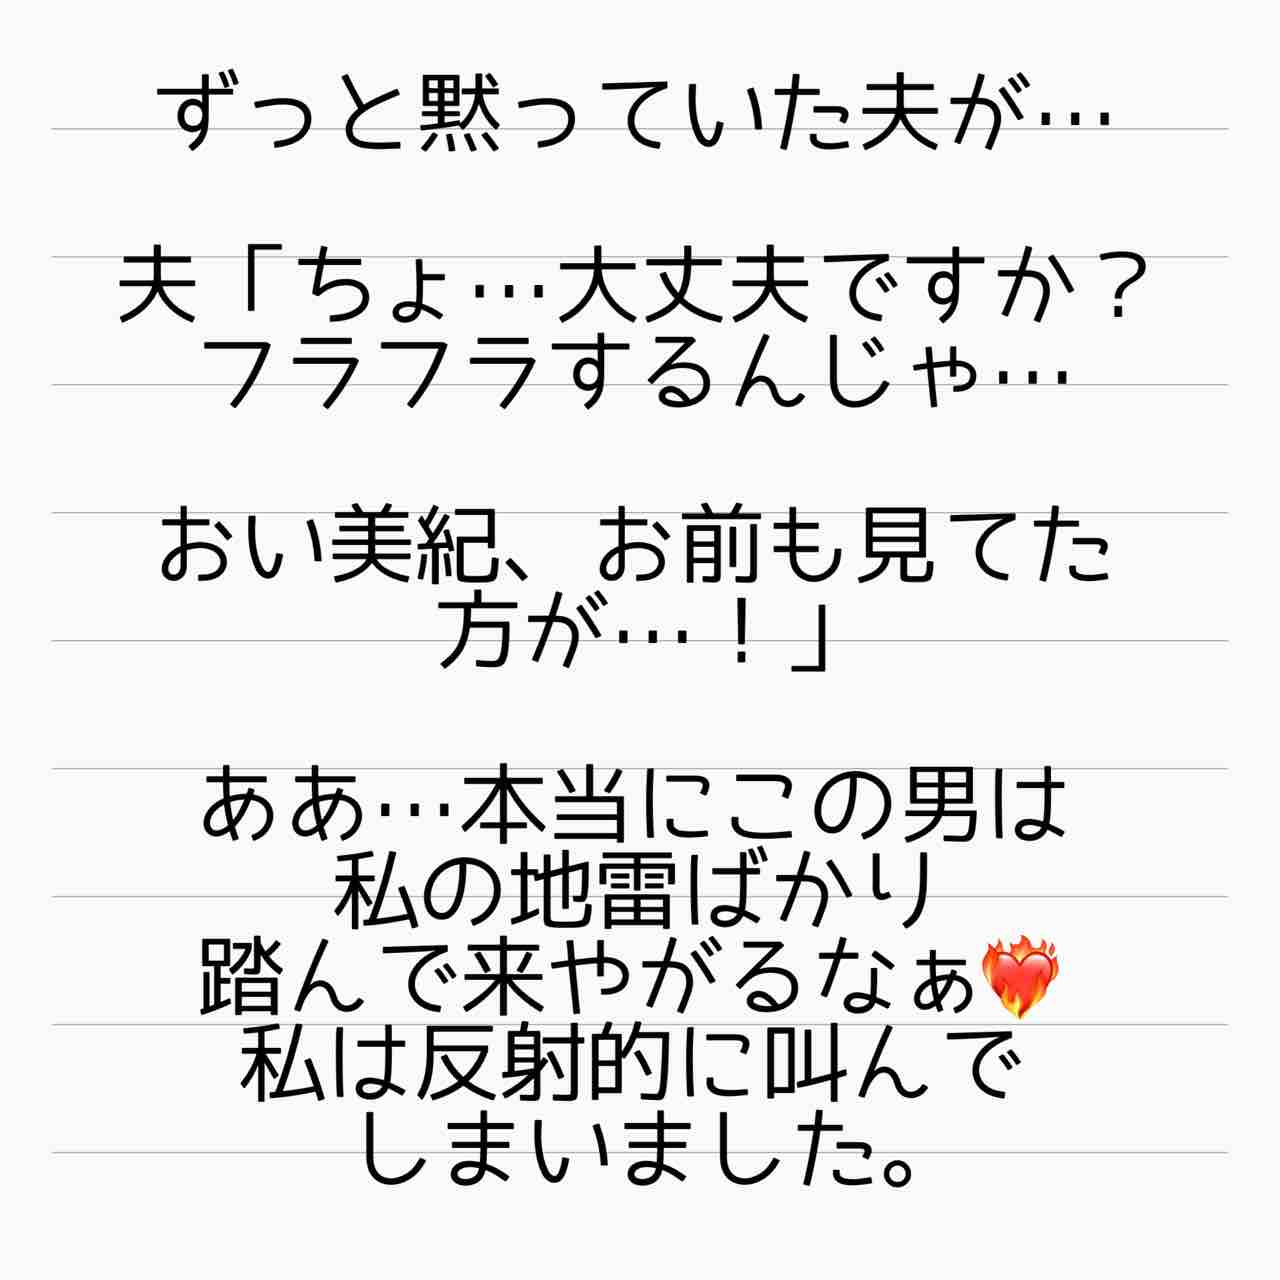 ずっと黙っていた夫が…
夫「ちょ…大丈夫ですか？
フラフラするんじゃ…
おい美紀、お前も見てた
方が…！」
ああ…本当にこの男は
私の地雷ばかり
踏んで来やがるなぁ❤️‍🔥
私は反射的に叫んで
しまいました。